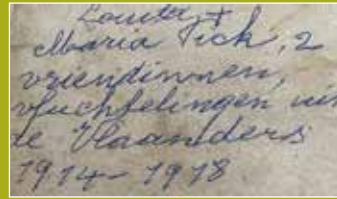 Louisa +
Maria Pick, 2
vriendinnen,
vluchtelingen uit
de Vlaanders
1914-1918